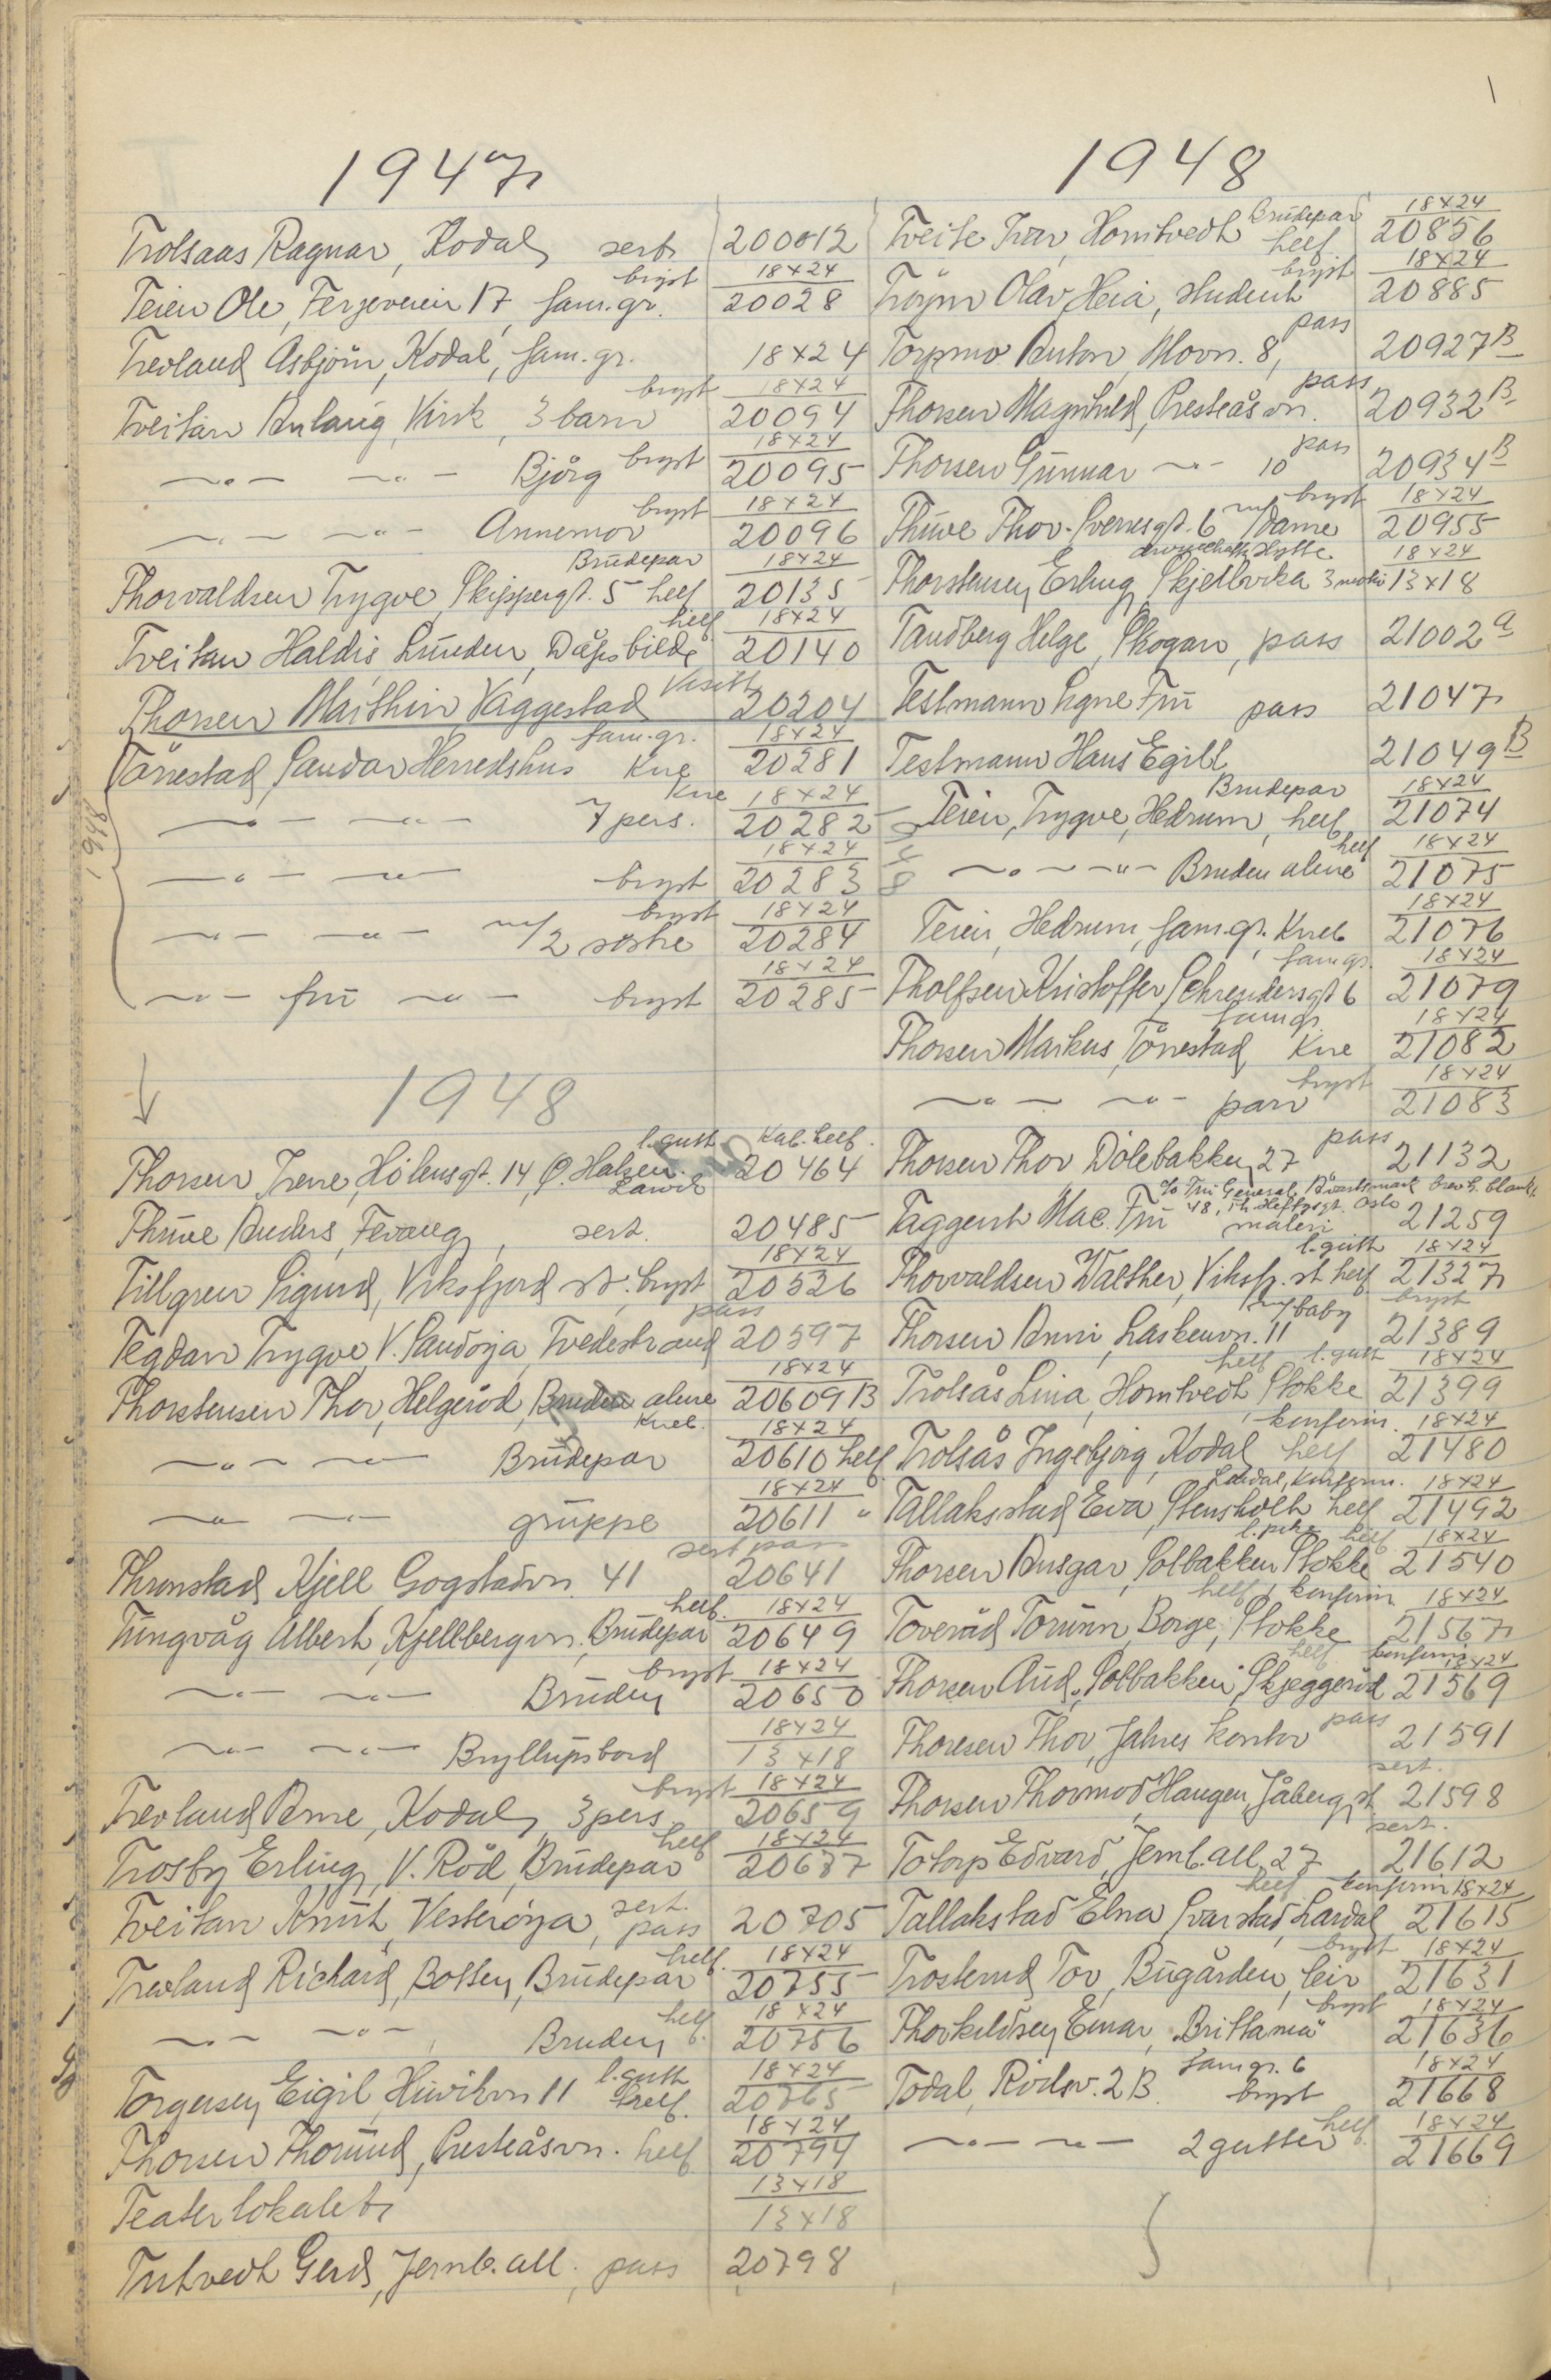 1947
Trolsaas Ragnar, Kodal sert 200012
Teien Ole, Ferjeveien 17, fam.gr. bryst 18x24 20028
Trevland Asbjörn, Kodal, fam.gr. 18x24
Tveitan Anlaug, Virik, 3 barn bryst 18x24 20094
—"— —"— Bjørg bryst 18x24 20095
—"— —"— Annemor bryst 18x24 20096
Thorvaldsen Trygve, Skippergt. 5 Brudepar helf 18x24 20135
Tveitan Haldis Lunden, Dåpsbilde helf 18x24 20140
Thorsen Vaggestad Visitt 20204
Tønestad, Sandar Herredshus fam.gr. Kne 18x24 20281
—"— —"— 7 pers. Kne 18x24 20282
—"— —"— bryst 18x24 20283
—"— —"— m/2 søstre bryst 18x24 20284
—"— fru —"— bryst 18x24 20285
1948
1948
Thorsen Irene, Hølensgt. 14, Ø. Halsen. Larvik l.gutt Kab.helf. 20464
Thuve Anders, Fevang, sert. 20485
Tillgren Sigurd, Viksfjord st. bryst 18x24 20536
Tegdan Trygve V. Sandøya, Tvedestrand pass 20597
Thorstensen Thor, Helgerød, Bruden alene Kneb. 18x24 20609 B
—"— —"— Brudepar 18x24 20610 helf
—"— —"— gruppe 18x24 20611 "
Thronstad Kjell Gogstadvn. 41 sert pass 20641
Tungvåg Albert, Kjellbergvn. Brudepar helf. 18x24 20649
—"— —"— Bruden bryst 18x24 20650
—"— —"— Bryllupsbord 18x24 13x18
Trevland Arne, Kodal, 3 pers bryst 18x24 20659
Trosby Erling, V. Röd, Brudepar helf 18x24 20687
Tveitan Knut, Vesterøya, sert. pass 20705
Trevland Richard, Botten, Brudepar helf. 18x24 20755
—"— —"— Bruden helf. 18x24 20756
Torgersen Eigil, Huvikvn 11 l.gutt helf. 18x24 20765
Thorsen Thorund, Presteåsvn. helf 18x24 20794
Teaterlokalet 13x18 13x18
Tutvedt Gerd, Jernb.all. pass 20798
1948
Tveite Ivar, Homtvedt Brudepar helf 18x24 20856
Olav Heia, student bryst 18x24 20885
Torpmo Anton, Movn. 8, pass 20927 B
Thorsen Magnhild, Presteåsvn. pass 20932 B
Thorsen Gunnar —"— 10 pass 20934 B
Thuve Thor. Sverresgt. 6 m/dame bryst 18x24 20955
Thorstensen Erling, Skjellvika 3 motiv Hytte 18x24 13x18
Tandberg Helge, Skogan, pass 21002 a
Testmann Signe Fru pass 21047
Testmann Hans Egill 21049 B
Teien, Trygve, Hedrum, helf Brudepar 18x24 21074
—"— —"— Bruden alene helf 18x24 21075
Teien, Hedrum, fam.gr. Kneb 18x24 21076
Tholfsen Kristoffer, Schrendersgt 6 fam.gr. 18x24 21079
Thorsen Markus, Tønestad, Kne fam.gr. 18x24 21082
—"— —"— parr bryst 18x24 21083
Thorsen Thor Dölebakken 27 pass 21132
Taggerst Mac. Fru c/o Fru General Oslo maleri 21259
Thorvaldsen Walther, Viksfj. st. helf l.gutt 18x24 21327
Thorsen Anni, Laskenvn. 11 m/baby bryst 21389
Trolsås Lina, Homtvedt, Stokke helf l.gutt 18x24 21399
Trolsås Ingebjørg, Kodal helf konfirm. 18x24 21480
Tallakstad Eva, Stensholt helf Lardal, Konfirm. 18x24 21492
Thorsen Ansgar, Solbakken Stokke l.pike helf. 18x24 21540
Toveröd Torunn, Borge, Stokke helf konfirm 18x24 21567
Thorsen Aud, "Solbakken" Skjeggerød helf. konfirm 18x24 21569
Thoresen Thor, Jahres kontor pass 21591
Thorsen Thormod, Haugen, Jåberg st. sert. 21598
Totorp Edvard, Jernb.all. 27 sert. 21612
Tallakstad Elna, Svarstad, Lardal helf konfirm 18x24 21615
Trosterud Tor, Bugården, leir bryst 18x24 21631
Thorkildsen Einar, "Brittania" bryst 18x24 21636
Todal, Rödsv. 2 B. Fam.gr. 6 bryst 18x24 21668
—"— —"— 2 gutter helf. 18x24 21669